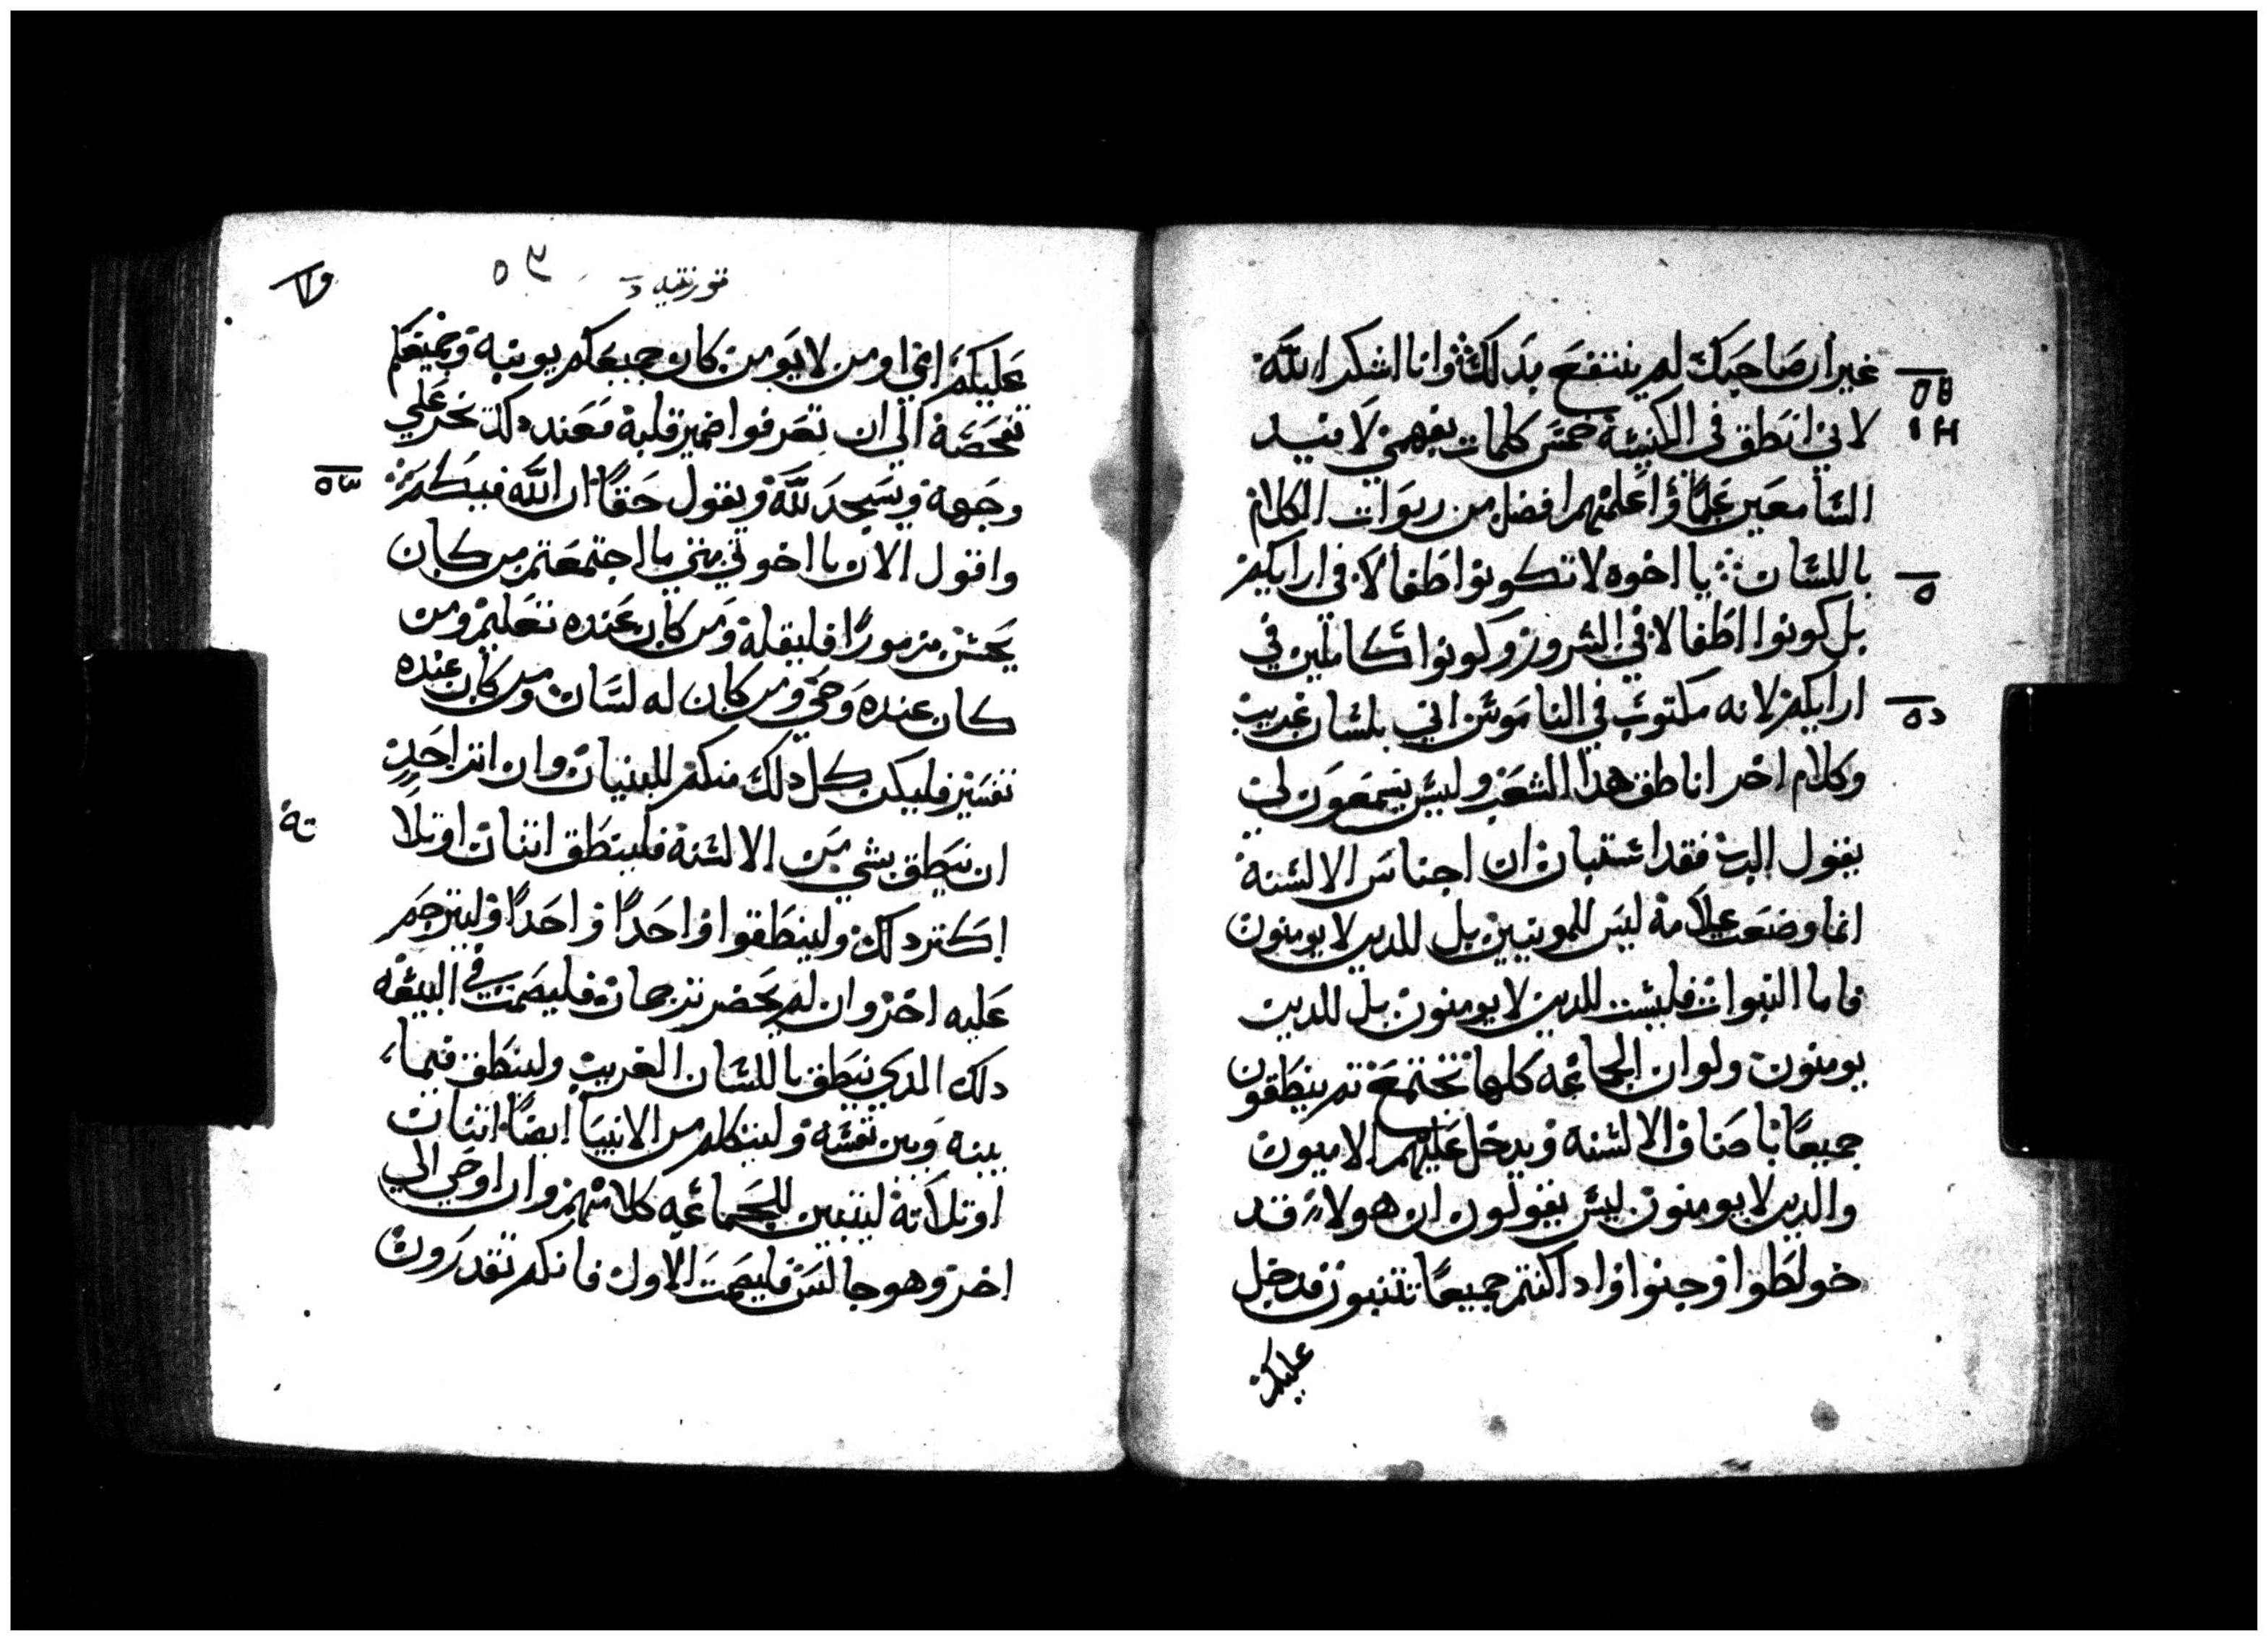 غير ان صاحبك لم ينتفع بدلك وانا اشكر الله
لاني انطق في الكنيسة خمس كلمات بفهمي لافيد
السامعين علمًا واعلمهم افضل من ربوات الكلام
باللسان يا اخوه لا تكونوا اطفالا في ارايكم
بل كونوا اطفالا في الشرور وكونوا كاملين في
ارايكم لانه مكتوب في الناموس اني بلسان غريب
وكلام اخر اناطق هدا الشعب وليس يسمعون لي
يقول الرب فقد استبان ان اجناس الالسنة
انما وضعت علامة ليس للمومنين بل للدين لا يومنون
فاما النبوات فليست للدين لا يومنون بل للدين
يومنون ولو ان الجماعه كلها تجتمع تم ينطقون
جميعًا باصناف الالسنه ويدخل عليهم الاميون
والدين لا يومنون ليس يقولون ان هولاء قد
خولطوا وجنوا واداكنتم جميعًا تتنبون فدخل
عليكم
قورنتيه
٥٣
عليكم امي او من لا يومن كان جميعكم يوبنه وجميعكم
تفحصه الي ان تعرفوا ضمير قلبة فعند دلك يخر علي
وجهة ويسجد لله ويقول حقًا ان الله فيكم
واقول الان يا اخوتي متي ما اجتمعتم من كان
يحسن مزمورًا فليقلة ومن كان عنده تعليم ومن
كان عنده وحي ومن كان له لسان ومن كان عنده
تفسير فليكن كل دلك منكم للبنيان وان اتر احد
ان ينطق بشي من الالسنة فلينطق اتنان او تلا
اكتر دلك ولينطقوا واحدًا واحدًا وليترجم
عليه اخر وان لم يحضر ترجمان فليصمت في البيعه
دلك الدي ينطق باللسان الغريب ولينطق فيما
بينه وبين نفسه وليتكلم من الانبيا ايضًا اتنان
او تلاتة ليتبين للجماعه كلامهم وان اوحي الي
اخر وهو جالس فليصمت الاول فانكم تقدرون